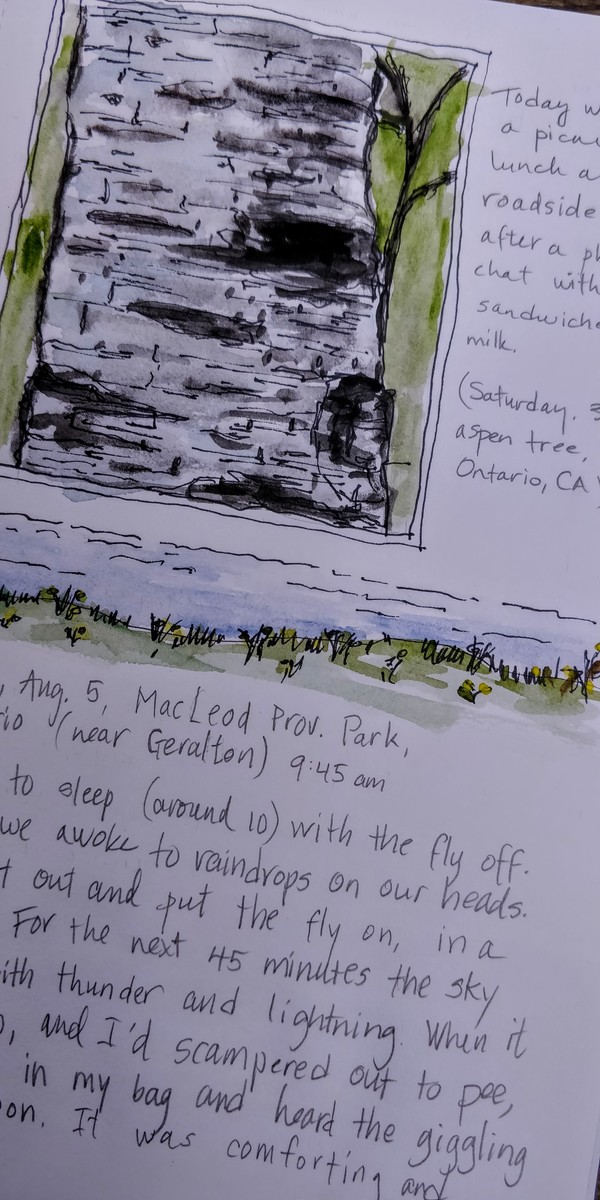 Today w
a picni
lunch a
roadside
after a ph
chat with
sandwiche
milk.
(Saturday. 3
aspen tree,
Ontario, CA)
, Aug. 5, MacLeod Prov. Park,
rio (near Geralton) 9:45 am
to sleep (around 10) with the fly off.
we awoke to raindrops on our heads.
t out and put the fly on, in a
For the next 45 minutes the sky
ith thunder and lightning. When it
, and I'd scampered out to pee,
in my bag and heard the giggling
oon. It was comforting and